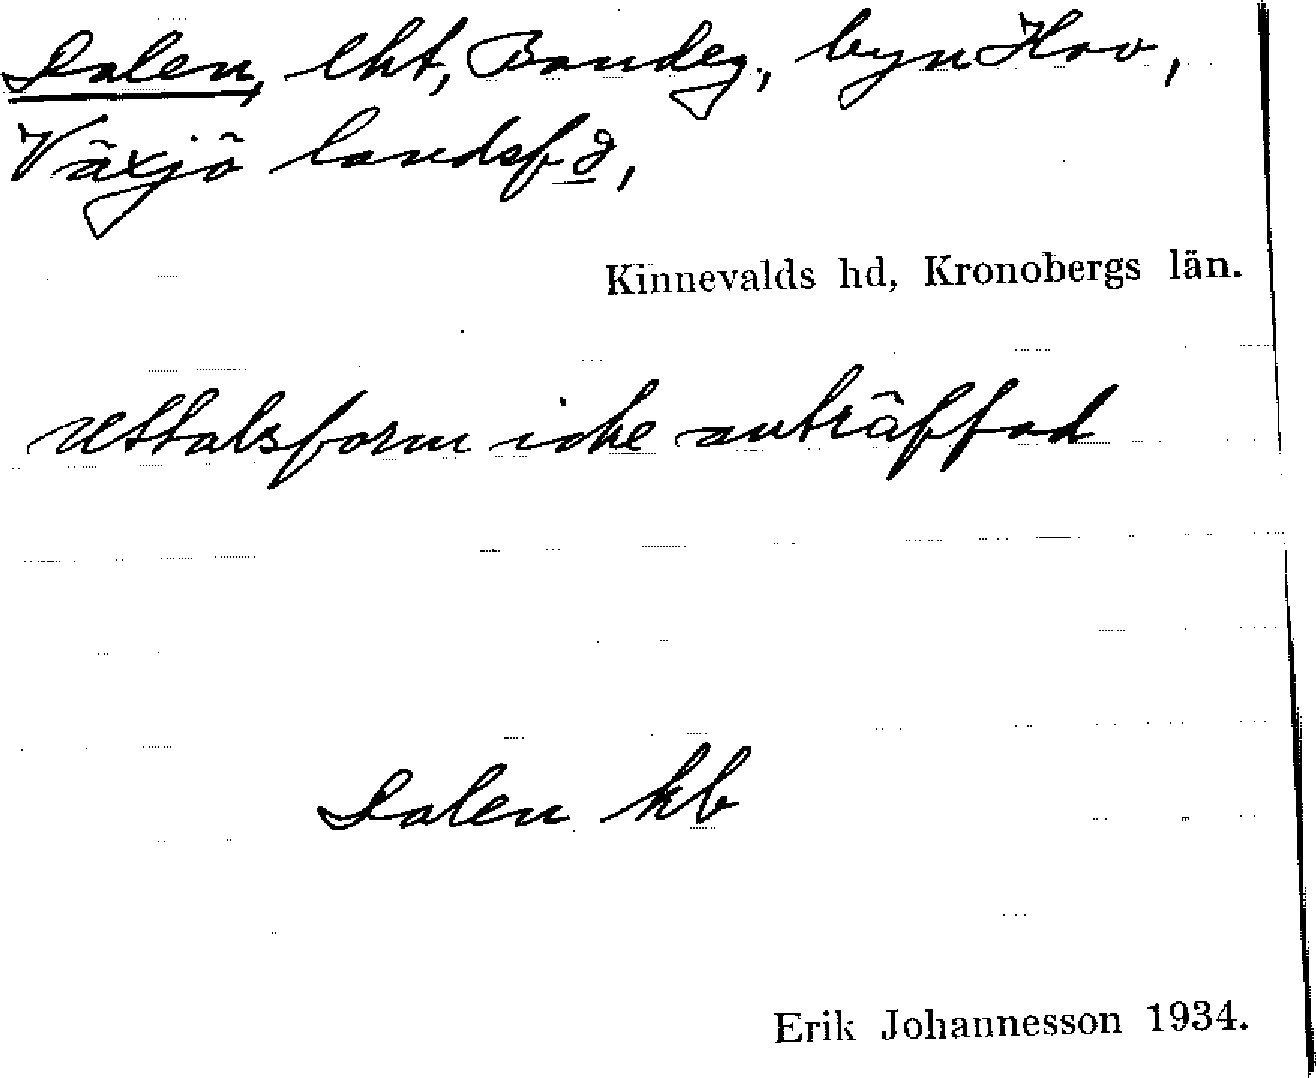 Dalen, lht, Bondeg., byn Hov,
Växjö landsf.,
Kinnevalds hd, Kronobergs län.
Uttalsform icke anträffad
Dalen kb
Erik Johannesson 1934.